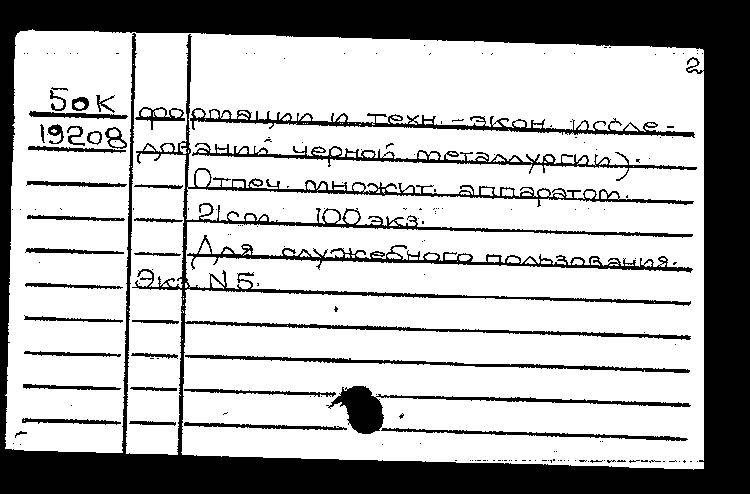 2
5оК
19208
формации и техн.-экон. иссле-
дований черной металлургии).
Отпеч. множит. аппаратом.
21 cm. 100 экз.
Для служебного пользования.
Экз. N 5.